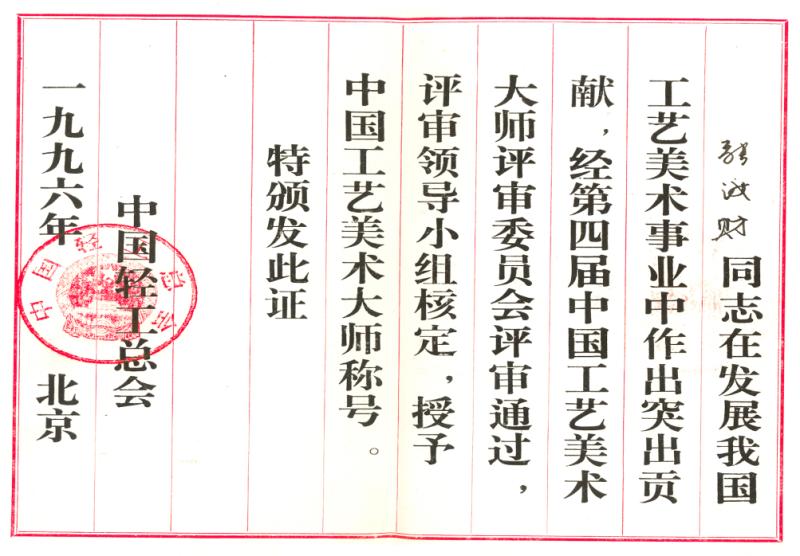 同志在发展我国
工艺美术事业中作出突出贡
献，经第四届中国工艺美术
大师评审委员会评审通过，
评审领导小组核定，授予
中国工艺美术大师称号。
特颁发此证
中国轻工总会
一九九六年 北京
中国轻工总会